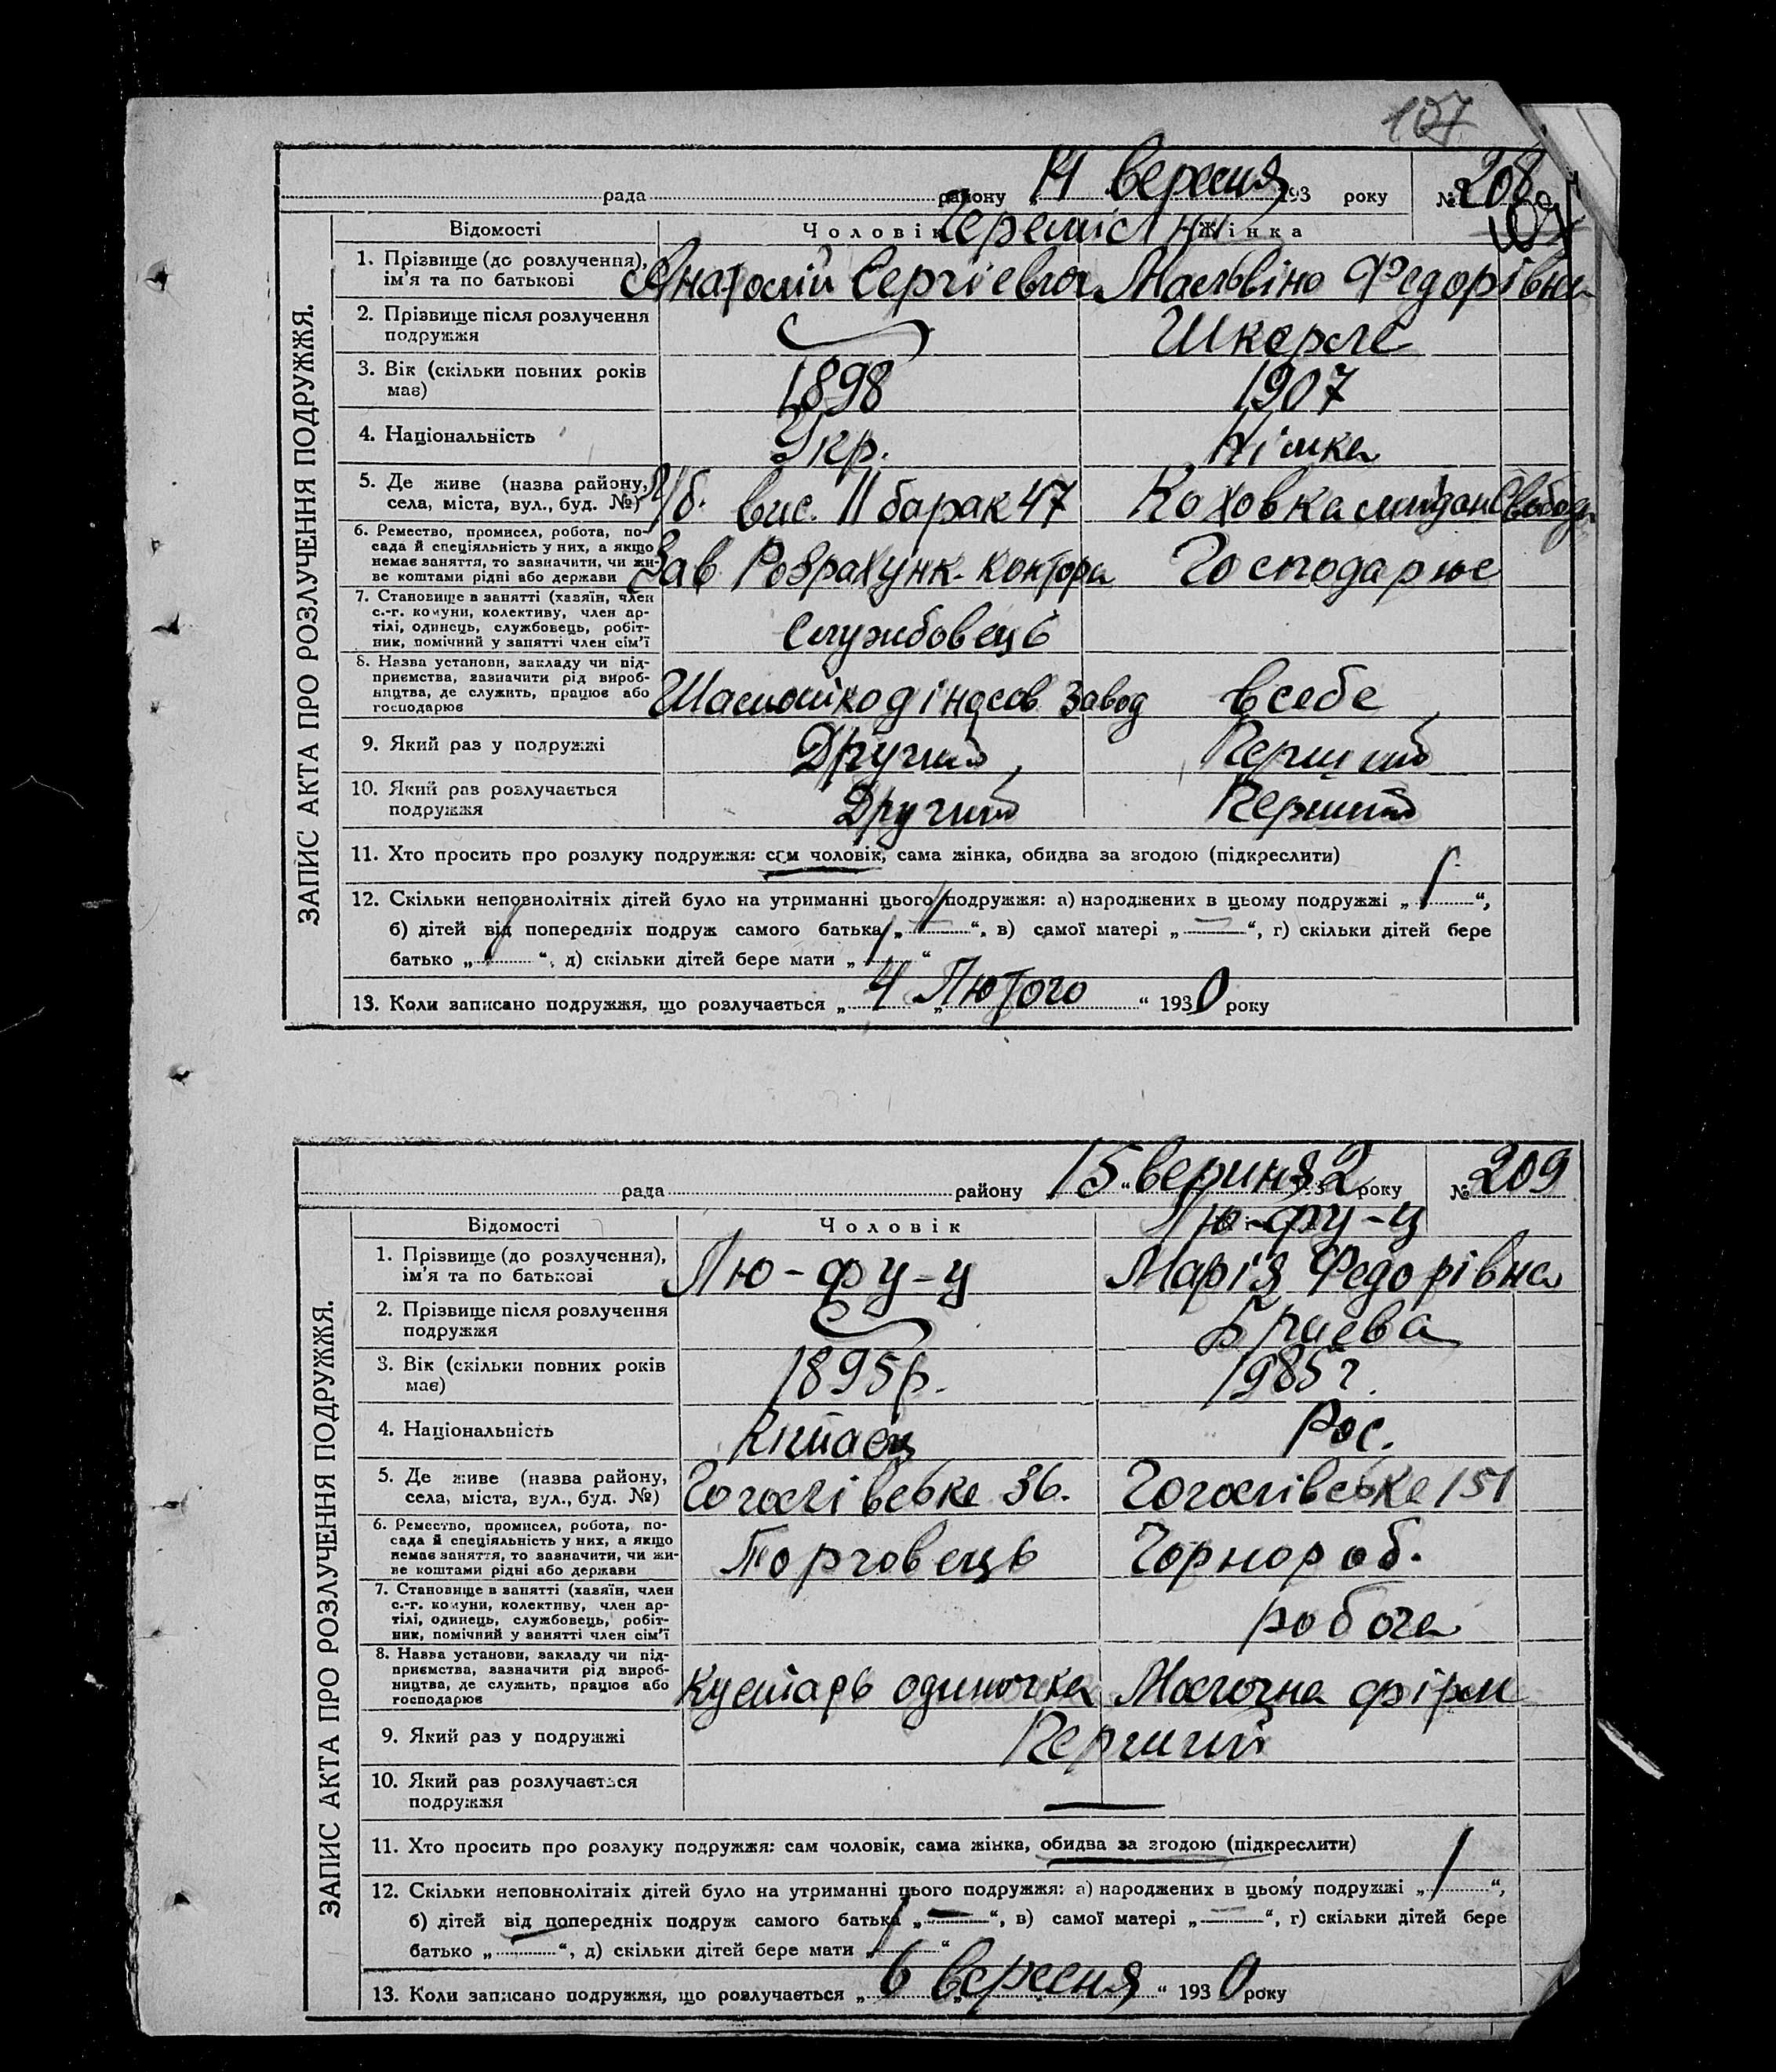 107
рада района 14 вересня 193 року № 208
Відомості Чоловік Жінка
1. Прізвище (до розлучення), Анатолій Сергієвич Мальвіна Федорівна
ім'я та по батькові
2. Прізвище після розлучення
подружжя
3. Вік (скільки повних років 1898 1907
має)
4. Національність Укр. Німка
5. Де живе (назва району, вис. 11 барак 47 Каховка Свобода
села, міста, вул., буд. №)
6. Ремество, промисел, робота, по-
сада й спеціяльність у них, а якщо
немає заняття, то зазначити, чи жи- Зав Розрахунк. контора Господарює
ве коштами рідні або держави
7. Становище в занятті (хазяїн, член
с.-г. комуни, колективу, член ар-
тілі, одинець, службовець, робіт- Службовець
ник, помічний у занятті член сім'ї
8. Назва установи, закладу чи під-
приємства, зазначити рід вироб-
ництва, де служить, працює або завод в себе
господарює
9. Який раз у подружжі Другий Перший
10. Який раз розлучається Другий Перший
подружжя
11. Хто просить про розлуку подружжя: сам чоловік, сама жінка, обидва за згодою (підкреслити)
12. Скільки неповнолітніх дітей було на утриманні цього подружжя: а) народжених в цьому подружжі „ 1 “,
б) дітей від попередніх подруж самого батька „ — “, в) самої матері „ — “, г) скільки дітей бере
батько „ “, д) скільки дітей бере мати „ 1 “
13. Коли записано подружжя, що розлучається „ 4 „ Лютого “ 1930 року
ЗАПИС АКТА ПРО РОЗЛУЧЕННЯ ПОДРУЖЖЯ.
рада району 15 „ вериня 32 року № 209
Відомості Чоловік Лю-фу-у
1. Прізвище (до розлучення), Лю-фу-у Марія Федорівна
ім'я та по батькові
2. Прізвище після розлучення
подружжя
3. Вік (скільки повних років 1895р. 1985г.
має)
4. Національність Китаєц Рос.
5. Де живе (назва району, Гоголівська 36. Гоголівська 151
села, міста, вул., буд. №)
6. Ремество, промисел, робота, по-
сада й спеціяльність у них, а якщо Торговець Чорнороб.
немає заняття, то зазначити, чи жи-
ве коштами рідні або держави
7. Становище в занятті (хазяїн, член
с.-г. комуни, колективу, член ар-
тілі, одинець, службовець, робіт- робоча
ник, помічний у занятті член сім'ї
8. Назва установи, закладу чи під-
приємства, зазначити рід вироб-
ництва, де служить, працює або Кустарь одиночка Молочна фірм
господарює
9. Який раз у подружжі Перший
10. Який раз розлучається
подружжя —
11. Хто просить про розлуку подружжя: сам чоловік, сама жінка, обидва за згодою (підкреслити)
12. Скільки неповнолітніх дітей було на утриманні цього подружжя: а) народжених в цьому подружжі „ 1 “,
б) дітей від попередніх подруж самого батька „ — “, в) самої матері „ — “, г) скільки дітей бере
батько „ — “, д) скільки дітей бере мати „ 1 “
13. Коли записано подружжя, що розлучається „ 6 „ вересня “ 1930 року
ЗАПИС АКТА ПРО РОЗЛУЧЕННЯ ПОДРУЖЖЯ.